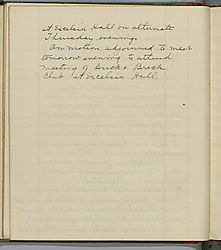 at Excelsia Hall on alternate
Thursday evening.
On motion adjourned to meet
tomorrow evening to attend
meeting of Buck & Breck
Club at Excelsia Hall.